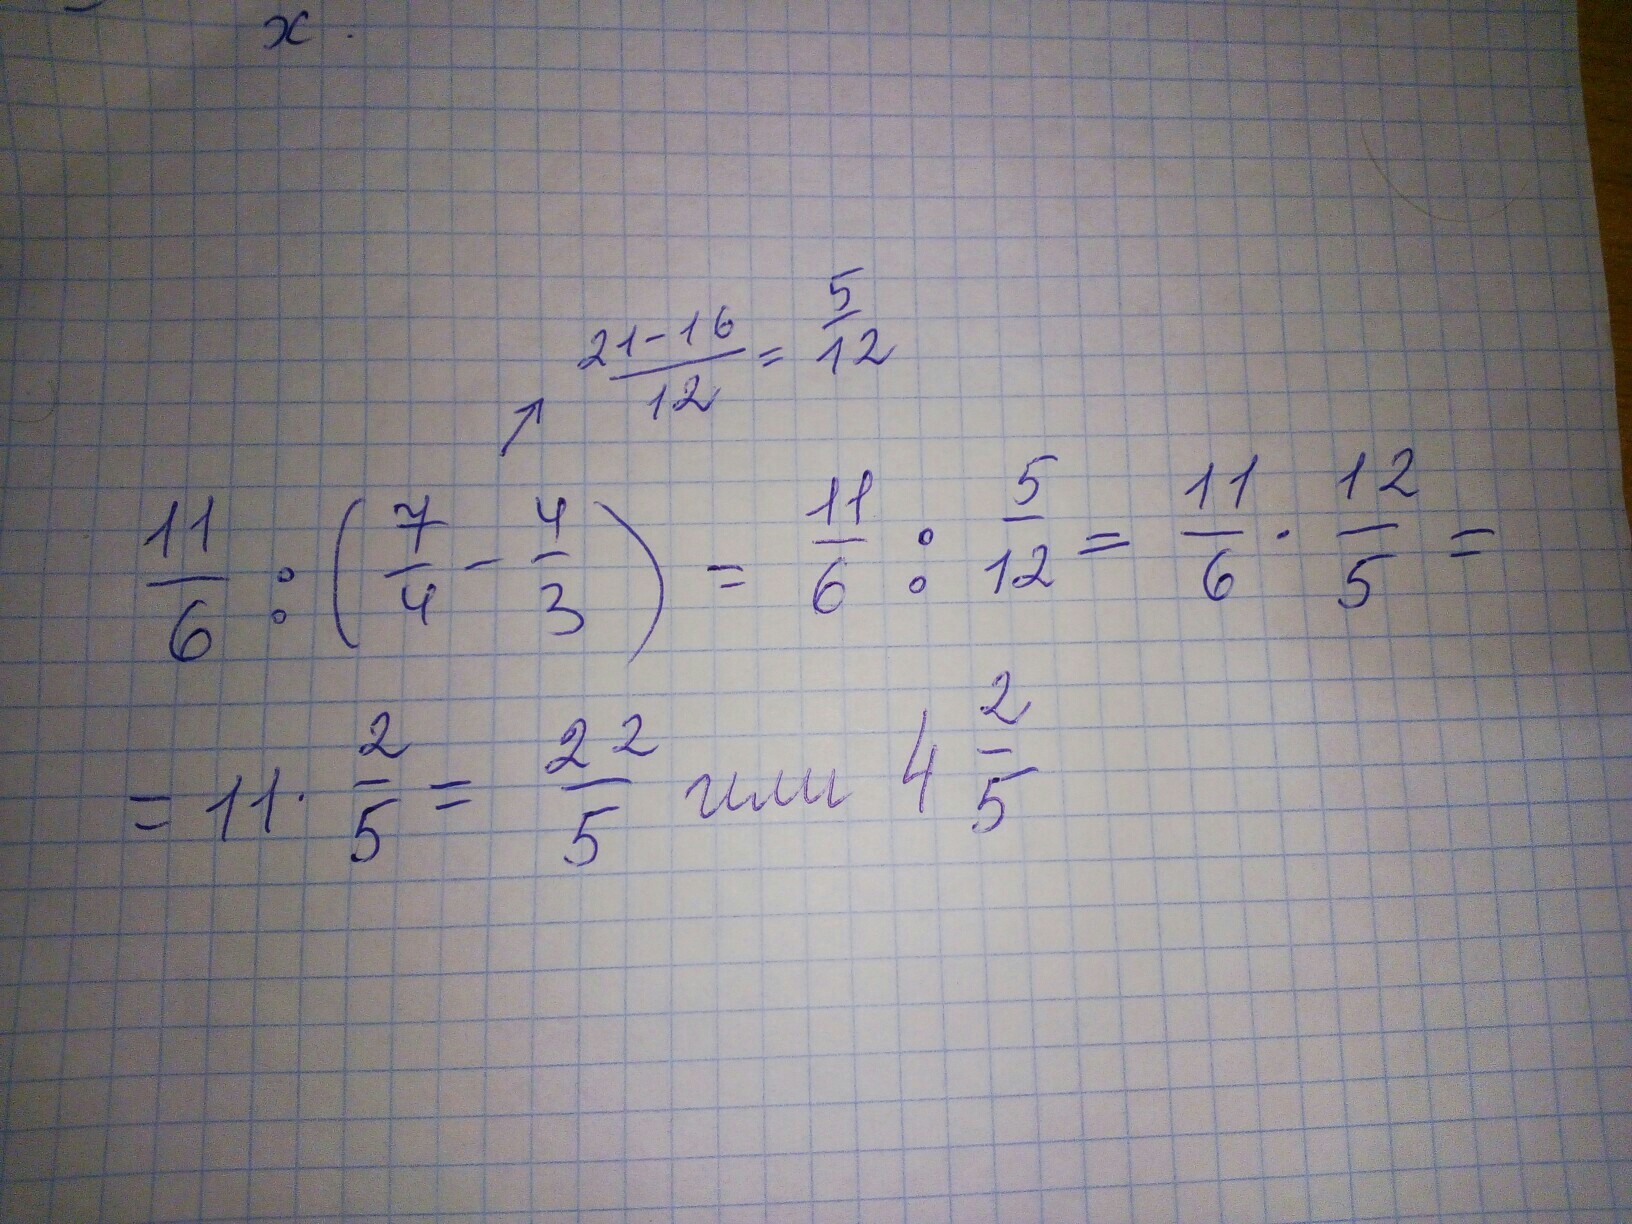 x.
21-16/12 = 5/12
↗
11/6 : (7/4 - 4/3) = 11/6 : 5/12 = 11/6 · 12/5 =
= 11 · 2/5 = 22/5 или 4 2/5